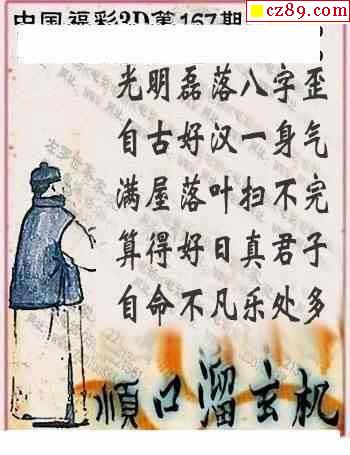 cz89.com
中国福彩3D第167期
光明磊落八字歪
自古好汉一身气
满屋落叶扫不完
算得好日真君子
自命不凡乐处多
顺口溜玄机